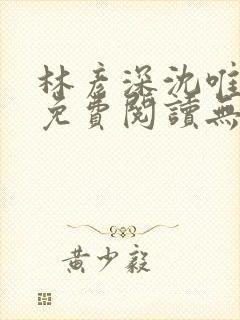 林彦深沈唯
免費閱讀無
黃少毅